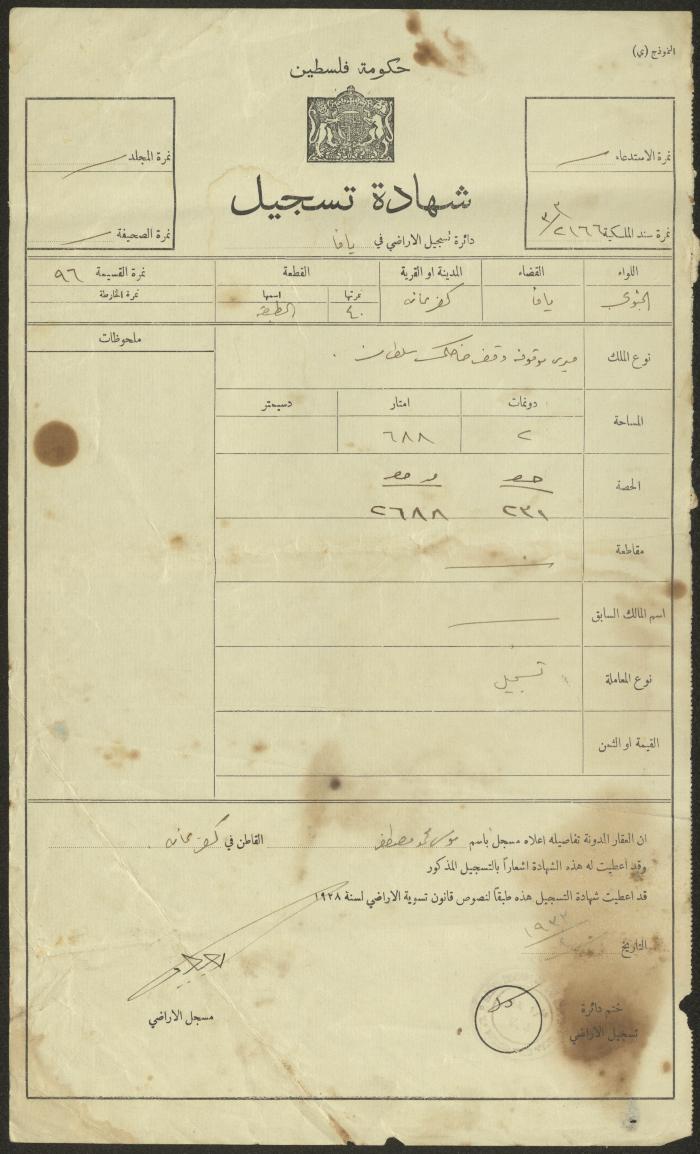 النموذج (ي)
حكومة فلسطين
نمرة الاستدعاء
نمرة المجلد
شهادة تسجيل
نمرة سند الملكية ٢١٦٦/٣٣
نمرة الصحيفة
دائرة تسجيل الاراضي في يافا
اللواء القضاء المدينة او القرية القطعة نمرة القسيمة ٩٦
نمرتها اسمها نمرة الخارطة
الجنوبي يافا كفر عانه ٤٠
نوع الملك ملحوظات
ميري موقوفة وقف خاصكي سلطان
دونمات امتار دسيمتر
المساحة
٢ ٦٨٨
الحصة
٢٣١ ٢٦٨٨
مقاطعة
اسم المالك السابق
نوع المعاملة تسجيل
القيمة او الثمن
ان العقار المدونة تفاصيله اعلاه مسجل باسم موسى محمد مصطفى القاطن في كفر عانه
وقد اعطيت له هذه الشهادة اشعاراً بالتسجيل المذكور
قد اعطيت شهادة التسجيل هذه طبقاً لنصوص قانون تسوية الاراضي لسنة ١٩٢٨
التاريخ
ختم دائرة
تسجيل الاراضي
مسجل الاراضي